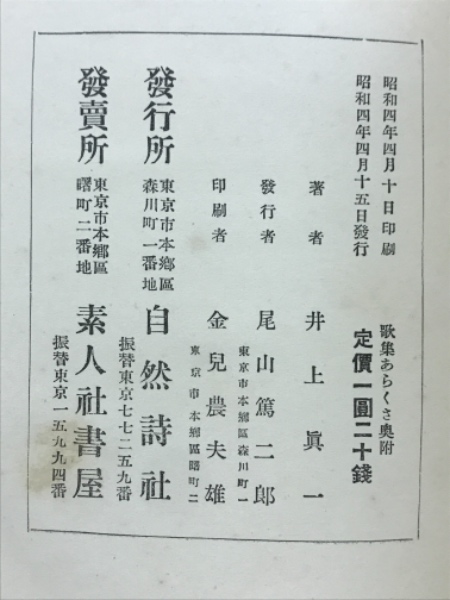 昭和四年四月十日印刷
昭和四年四月十五日發行
歌集あらくさ奥附
定價一圓二十錢
著者 井上眞一
發行者 尾山篤二郎
東京市本鄕區森川町一
印刷者 金兒農夫雄
東京市本鄕區曙町二
發行所 東京市本鄕區
森川町一番地 自然詩社
振替東京七七二五九番
發賣所 東京市本鄕區
曙町二番地 素人社書屋
振替東京一五九九四番